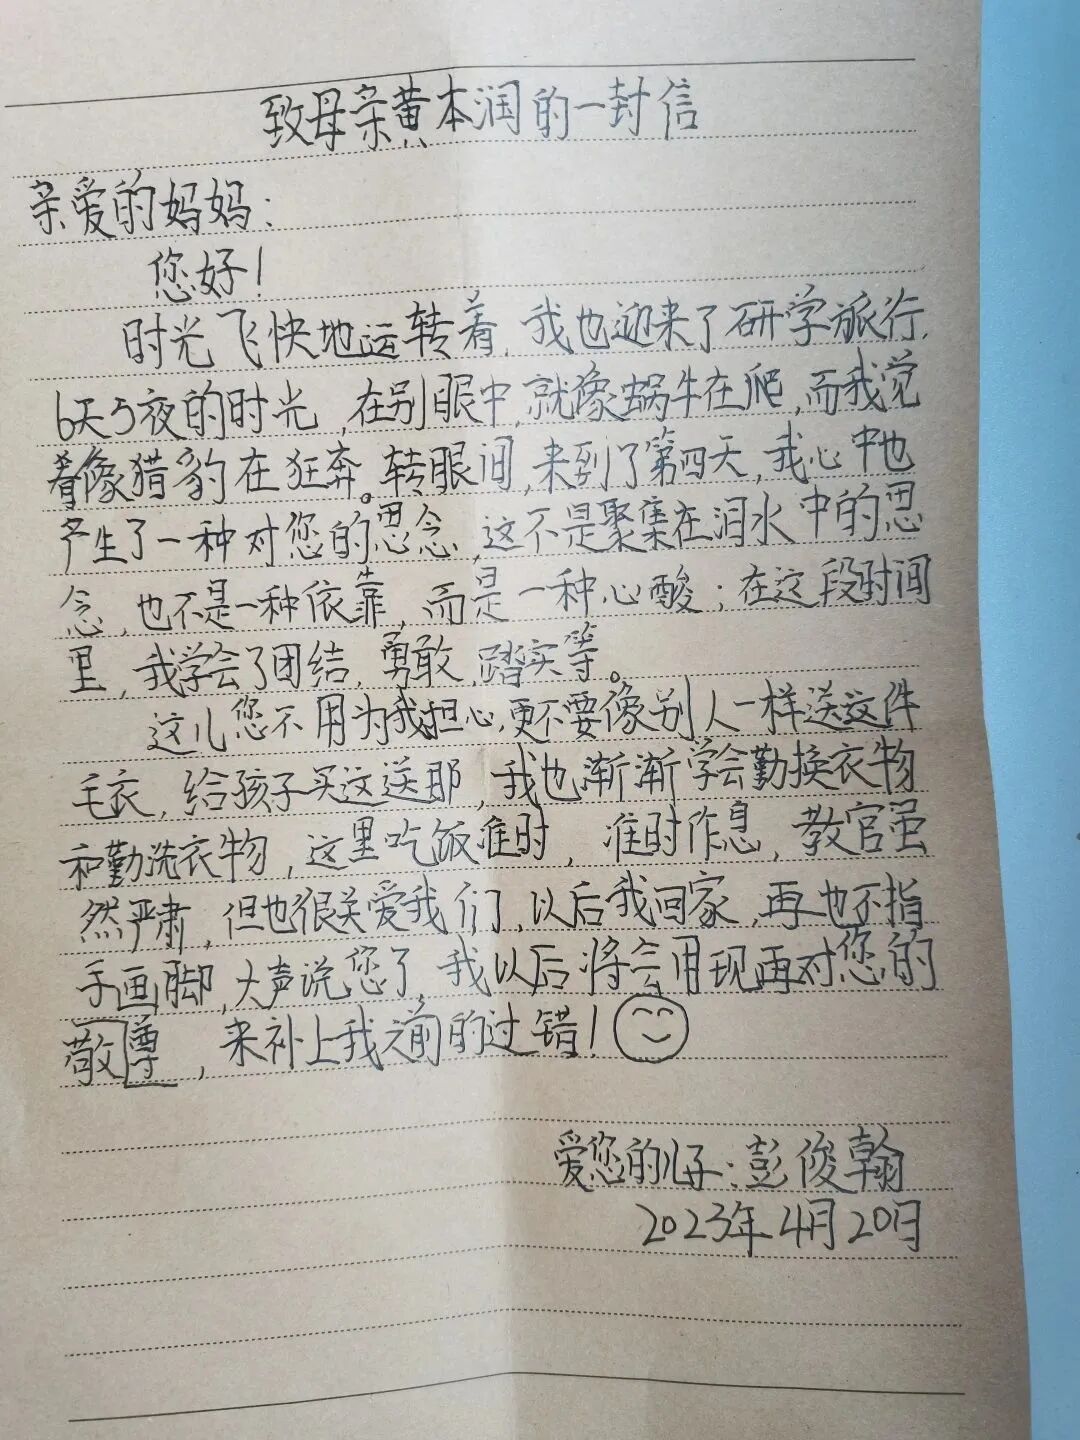 致母亲黄本润的一封信
亲爱的妈妈：
您好！
时光飞快地运转着，我也迎来了研学旅行，
6天5夜的时光，在别眼中，就像蜗牛在爬，而我觉
着像猎豹在狂奔。转眼间，来到了第四天，我心中也
产生了一种对您的思念，这不是聚集在泪水中的思
念，也不是一种依靠，而是一种心酸；在这段时间
里，我学会了团结，勇敢，踏实等。
这儿您不用为我担心，更不要像别人一样送这件
毛衣，给孩子买这送那，我也渐渐学会勤换衣物
和勤洗衣物，这里吃饭准时，准时作息，教官虽
然严肃，但也很关爱我们，以后我回家，再也不指
手画脚，大声说您了，我以后将会用现再对您的
敬尊，来补上我之前的过错！
爱您的儿子：彭俊翰
2023年4月20日